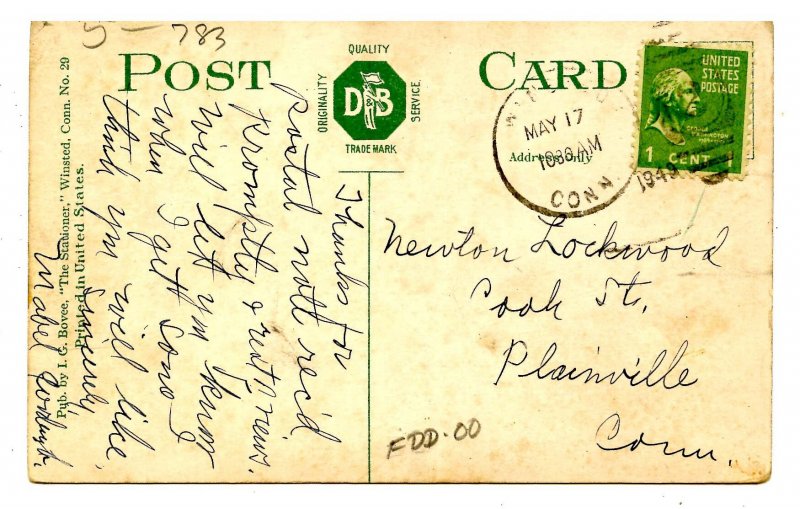 5 - 783
POST CARD
QUALITY
ORIGINALITY
DB
SERVICE
TRADE MARK
Address only
MAY 17
1030 AM
CONN.
UNITED
STATES
POSTAGE
1 CENT
Thanks for
postal note rec'd
promptly &
will let you know
when I get some I
think you will like
Sincerely
Mabel
Newton Lockwood
Cook St.
Plainville
Conn.
FDD.00
Pub. by I. G. Bovee, "The Stationer," Winsted, Conn. No. 29
Printed in United States.